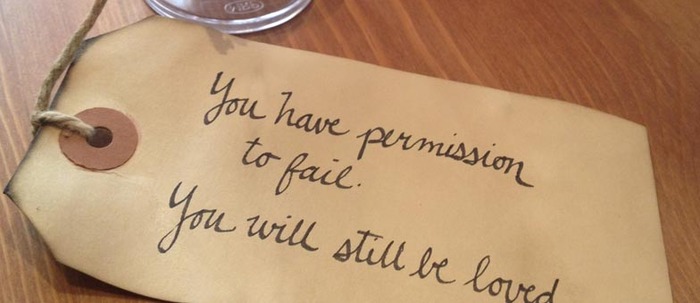 You have permission
to fail.
You will still be loved